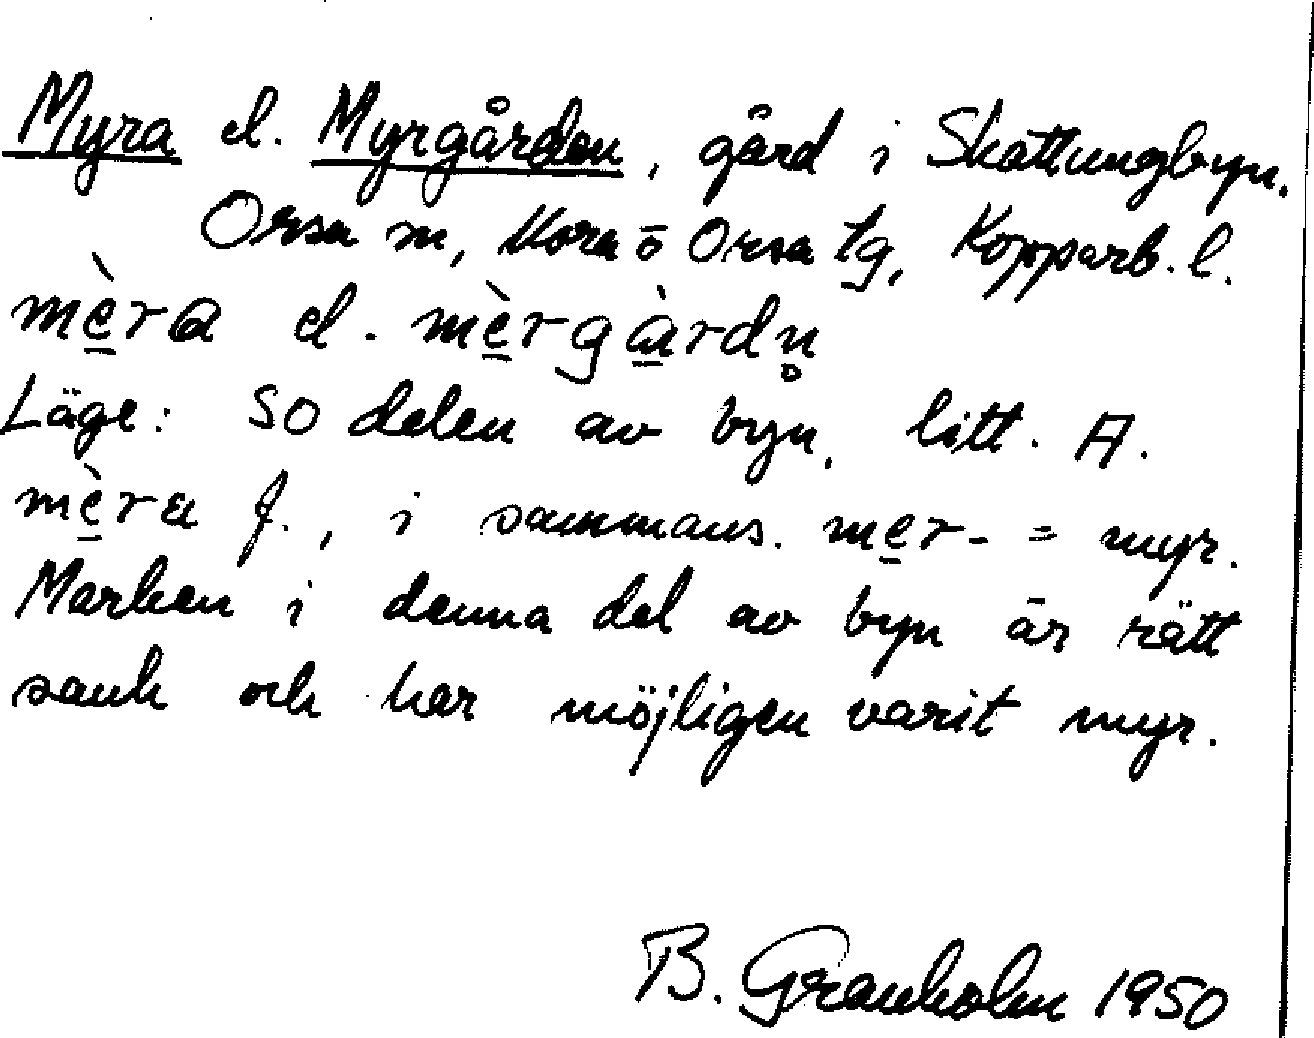 Myra el. Myrgården, gård i Skattungbyn.
Orsa sn, Mora o Orsa tg, Kopparb. l.
mè̲ra el. mè̲rgà̲rdn̥
Läge: SO delen av byn, litt. A.
mè̲ra f., i sammans. me̲r- = myr.
Marken i denna del av byn är rätt
sank och har möjligen varit myr.
B. Granholm 1950